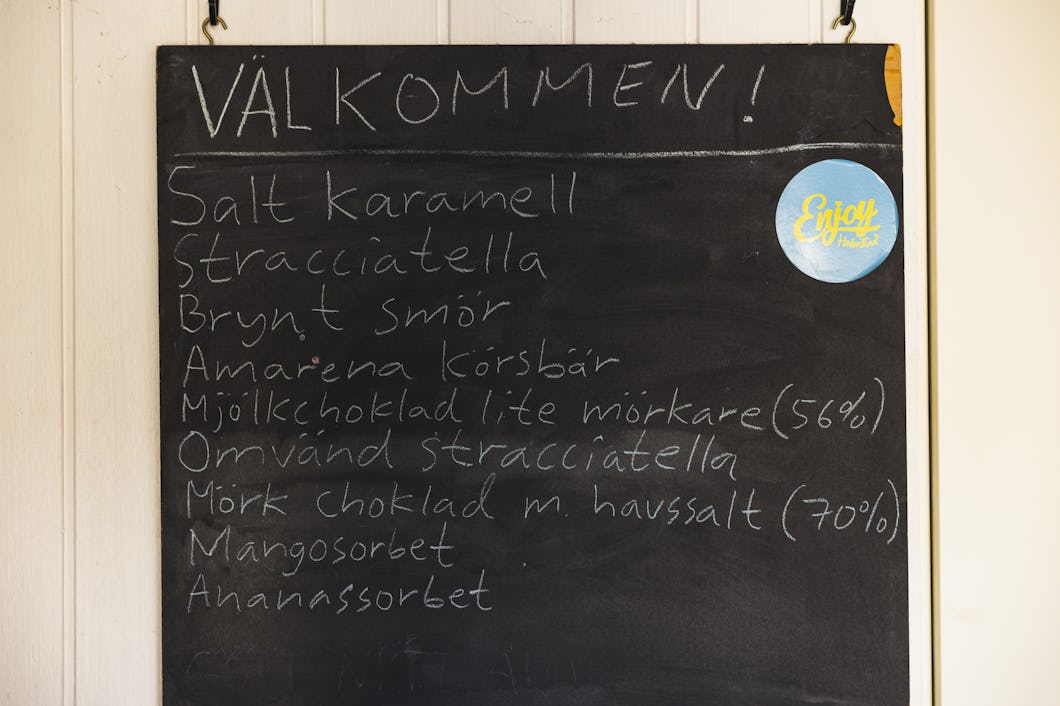 VÄLKOMMEN!
Salt karamell
Enjoy
Halmstad
Stracciatella
Brynt smör
Amarena körsbär
Mjölkchoklad lite mörkare (56%)
Omvänd stracciatella
Mörk choklad m. havssalt (70%)
Mangosorbet
Ananassorbet